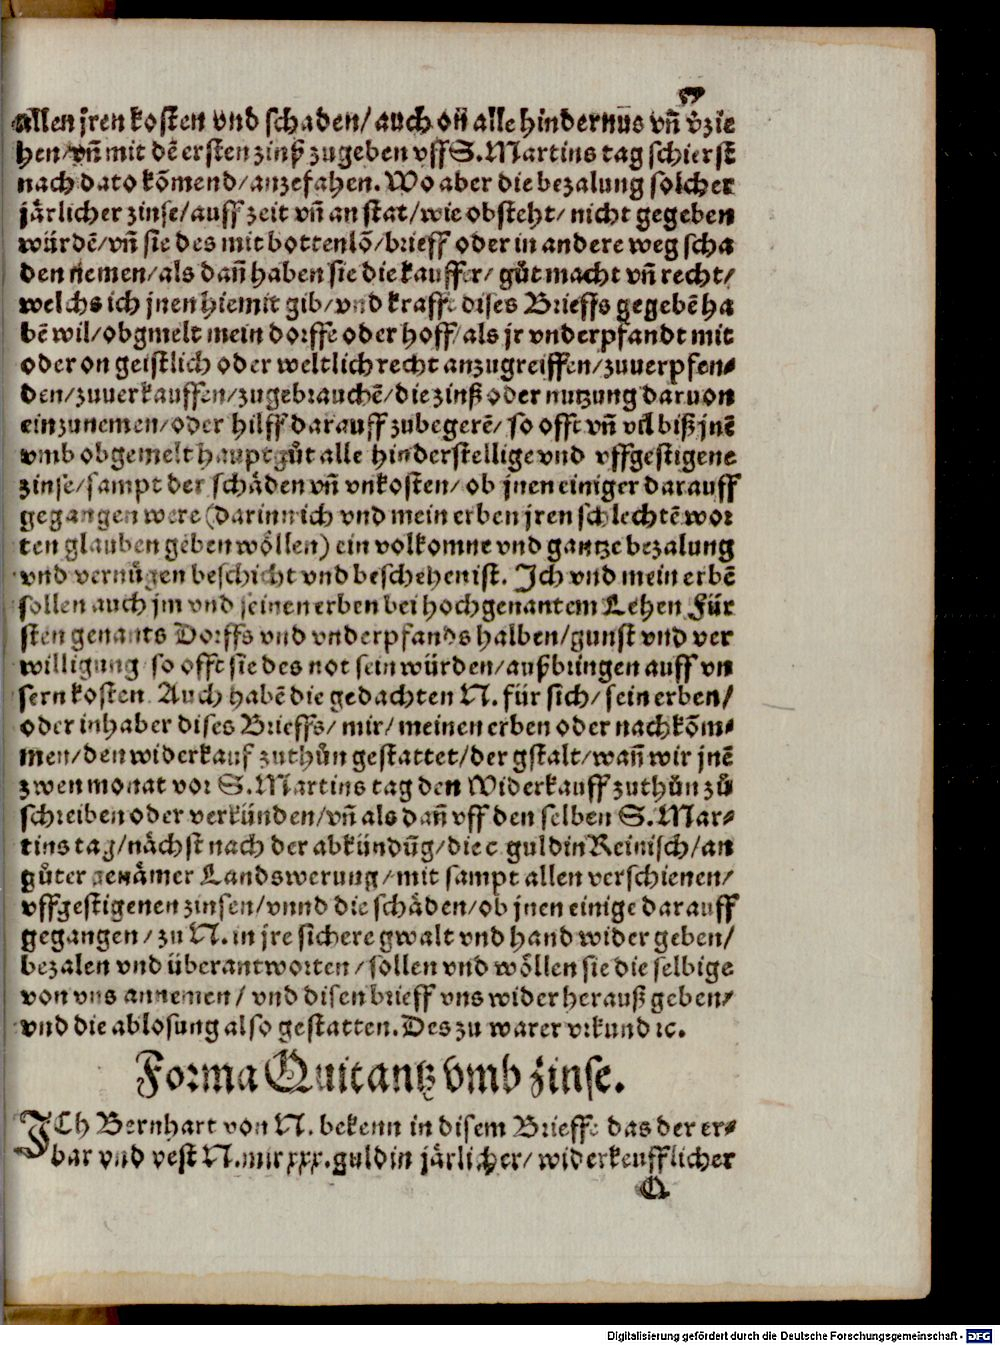 57
allen jren kosten vnd schaden/ auch on̄ alle hindernus vn̄ v̄zie
hen/ vn̄ mit dē ersten zinß zugeben vff S. Martins tag schierst
nach dato kōmend/ anzefahen. Wo aber die bezalung solcher
järlicher zinse/ auff zeit vn̄ an stat/ wie obsteht/ nicht gegeben
würdē/ vn̄ sie des mit bottenlō/ brieff oder in andere weg scha
den nemen/ als dan̄ haben sie die kauffer/ gůt macht vn̄ recht/
welchs ich jnen hiemit gib/ vnd krafft dises Brieffs gegebē ha
bē wil/ obgmelt mein dorffe oder hoff/ als jr vnderpfandt mit
oder on geistlich oder weltlich recht anzugreiffen/ zuuerpfen⸗
den/ zuuerkauffen/ zugebrauchē/ die zinß oder nutzung daruon
einzunemen/ oder hilff darauff zubegerē/ so offt vn̄ vil biß jnē
vmb obgemelt hauptgůt alle hinderstellige vnd vffgestigene
zinse/ sampt der schäden vn̄ vnkosten/ ob jnen einiger darauff
gegangen were (darinn ich vnd mein erben jren schlechtē wor
ten glauben geben wöllen) ein volkomne vnd gantze bezalung
vnd vernůgen beschicht vnd beschehen ist. Ich vnd mein erbē
sollen auch jm vnd seinen erben bei hochgenantem Lehen Für
sten genants Dorffs vnd vnderpfands halben/ gunst vnd ver
willigung so offt sie des not sein würden/ außbringen auff vn
sern kosten. Auch habē die gedachten N. für sich/ sein erben/
oder inhaber dises Brieffs/ mir/ meinen erben oder nachkōm⸗
men/ den widerkauf zuthůn gestattet/ der gstalt/ wan̄ wir jnē
zwen monat vor S. Martins tag den Widerkauff zuthůn zů
schreiben oder verkünden/ vn̄ als dan̄ vff den selben S. Mar⸗
tins tag/ nächst nach der abkündūg/ die c. guldin Reinisch/ an
gůter genämer Landswerung/ mit sampt allen verschienen/
vffgestigenen zinsen/ vnnd die schäden/ ob jnen einige darauff
gegangen/ zu N. in jre sichere gwalt vnd hand wider geben/
bezalen vnd überantworten/ sollen vnd wöllen sie die selbige
von vns annemen/ vnd disen brieff vns wider herauß geben/
vnd die ablosung also gestatten. Des zu warer vrkund ꝛc.
Forma Quitantz vmb zinse.
ICh Bernhart von N. bekenn in disem Brieffe das der er⸗
bar vnd vest N. mir xxx. guldin järlicher/ widerkeufflicher
Q
Digitalisierung gefördert durch die Deutsche Forschungsgemeinschaft - DFG